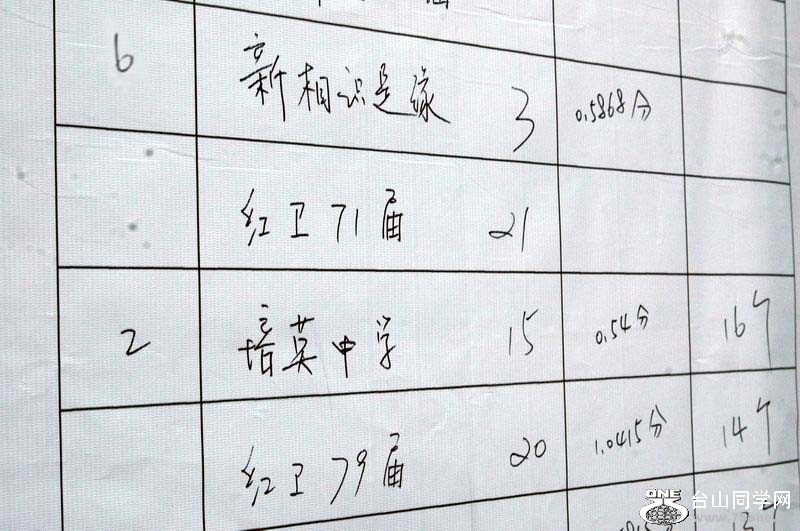 6 新相识是缘 3 0.5868分
红卫71届 21
2 培英中学 15 0.54分 16个
红卫79届 20 1.0415分 14个
ONE 台山同学网